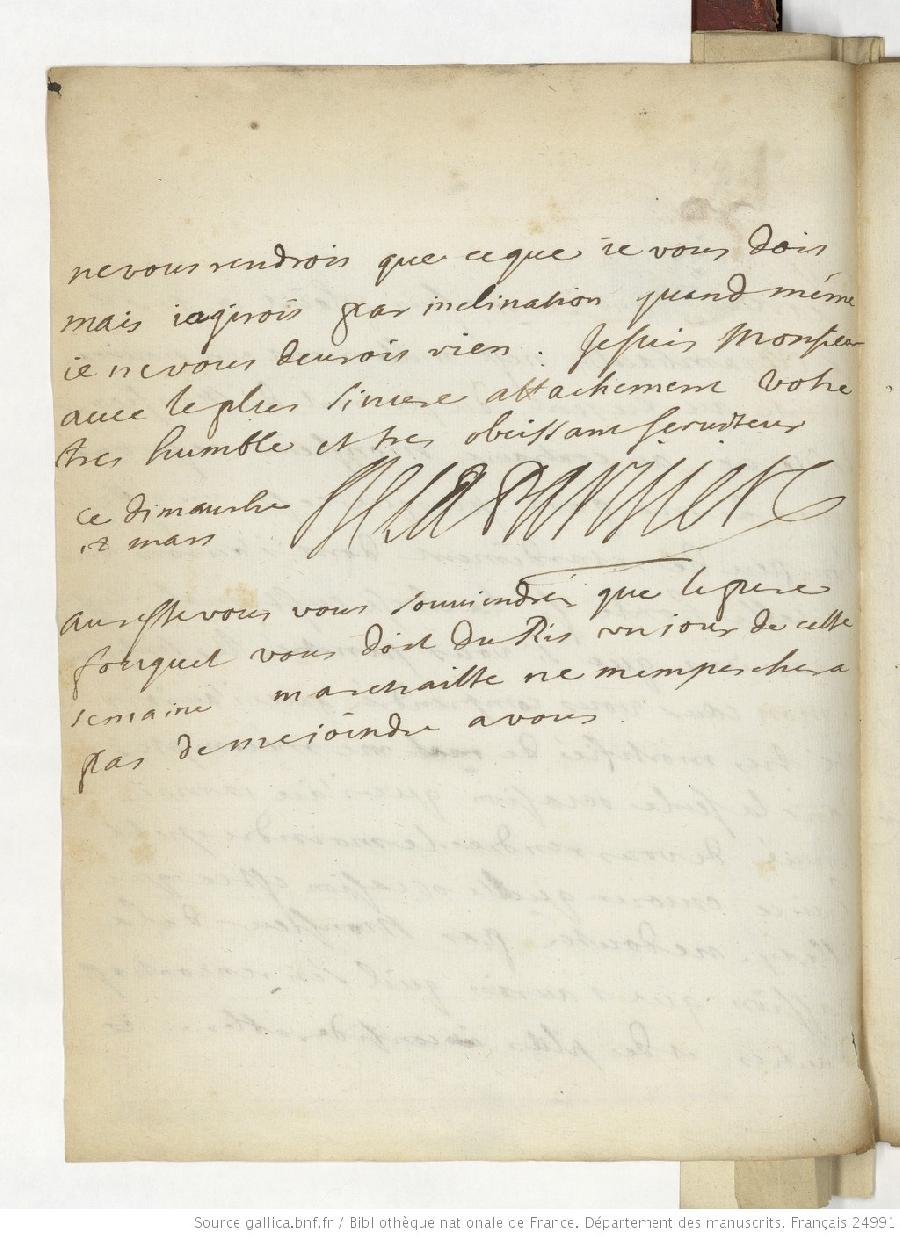 ne vous rendrois que ce que ie vous dois
mais iagirois par inclination quand même
ie ne vous deurois rien. Je suis Monsieur
auec le plus sincere attachement Votre
tres humble et tres obeissant seruiteur
ce dimanche
12 mars
au reste vous vous souuiendrés que le pere
fouquet vous doit du Ris un jour de cette
semaine ne mempeschera
pas de me ioindre a vous
Source gallica.bnf.fr / Bibliothèque nationale de France. Département des manuscrits. Français 24991